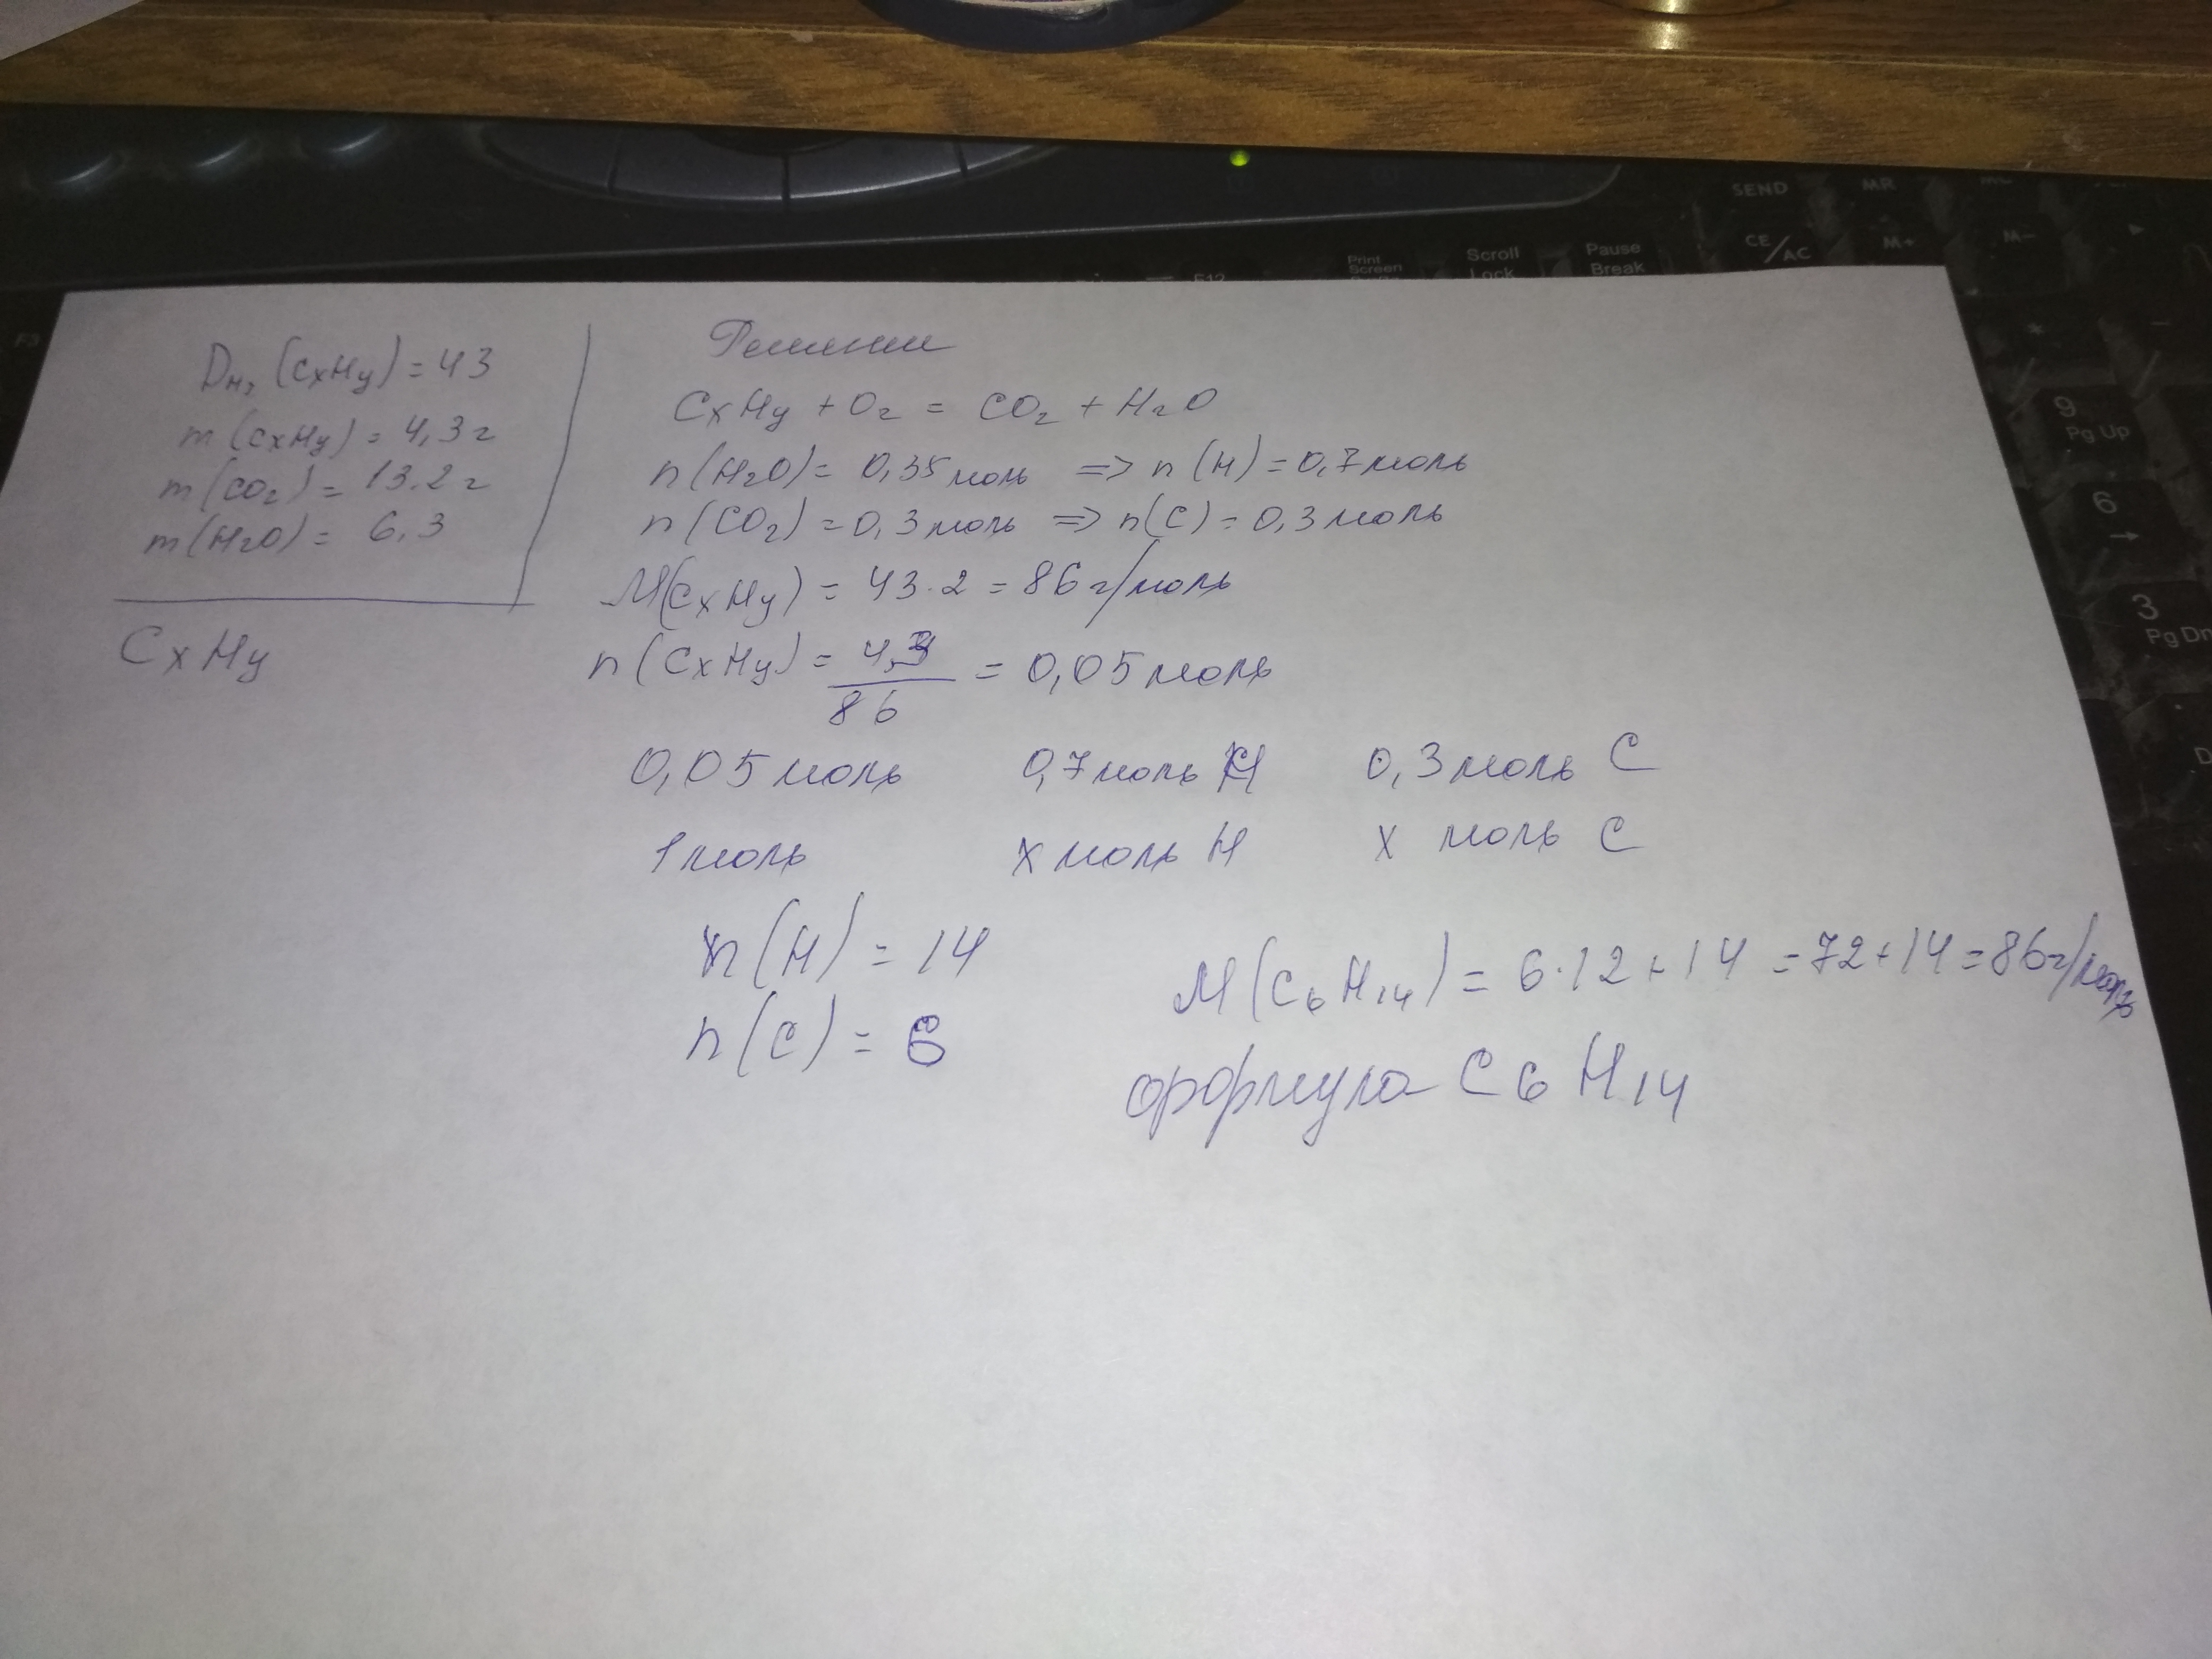 SEND MR
CE/AC M+ M-
F12 Print Screen Scroll Lock Pause Break
9 Pg Up
6 →
3 Pg Dn
F3
D_H₂ (CxHy) = 43
m (CxHy) = 4,3 г
m (CO₂) = 13.2 г
m (H₂O) = 6,3
CxHy
Решение
CxHy + O₂ = CO₂ + H₂O
n (H₂O) = 0,35 моль => n (H) = 0,7 моль
n (CO₂) = 0,3 моль => n(C) = 0,3 моль
M(CxHy) = 43·2 = 86 г/моль
n (CxHy) = 4,3/86 = 0,05 моль
0,05 моль 0,7 моль H 0,3 моль C
1 моль x моль H x моль C
n (H) = 14
n (C) = 6
M (C₆H₁₄) = 6·12 + 14 = 72 + 14 = 86 г/моль
формула C₆H₁₄